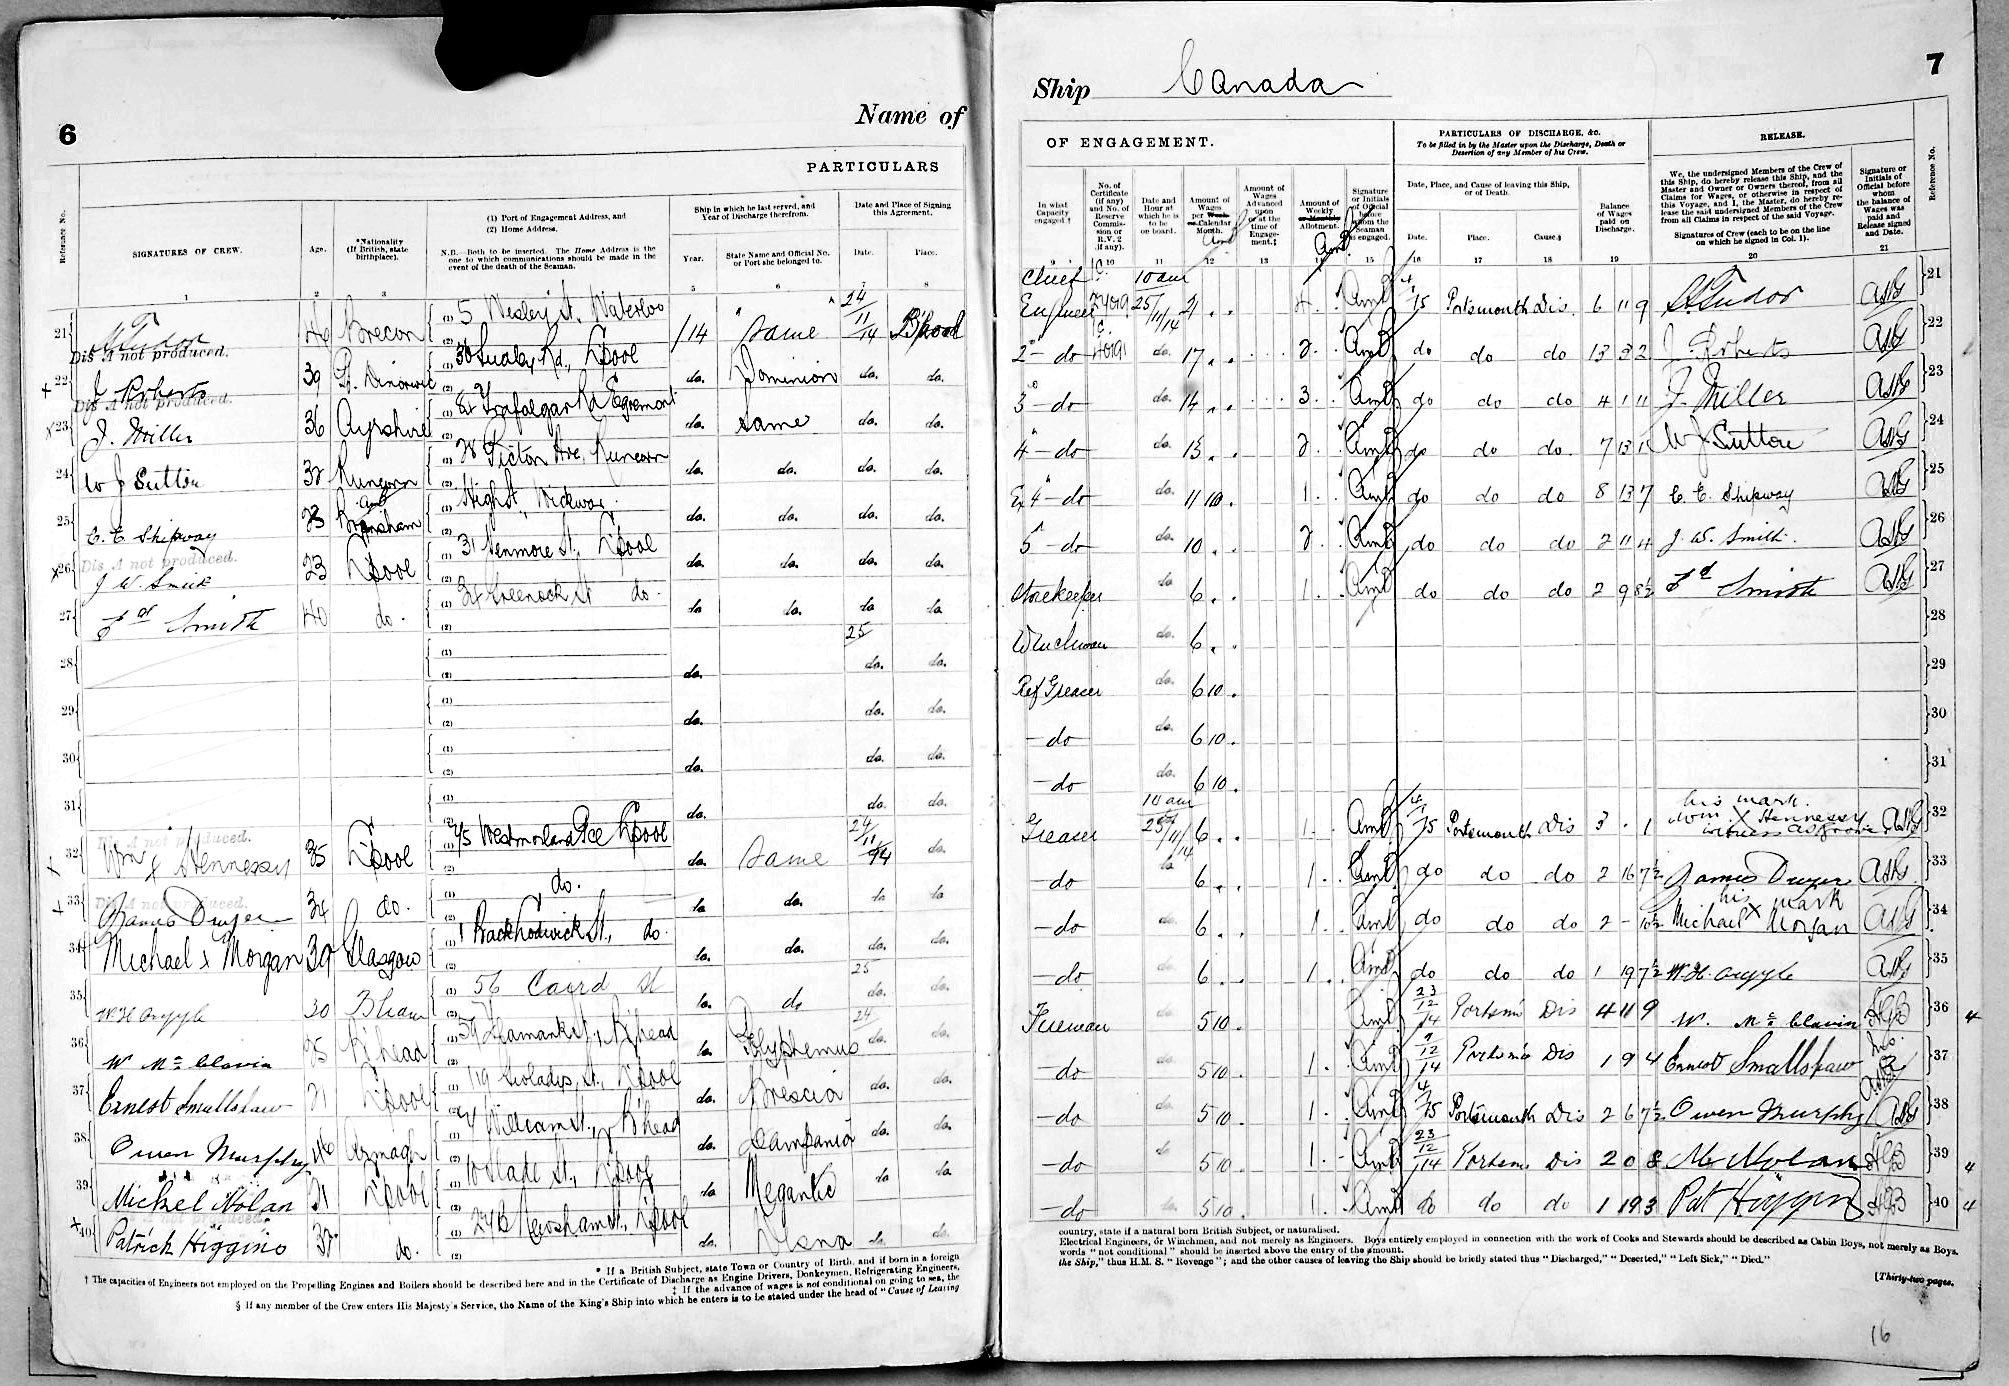 6
Name of
PARTICULARS
Reference No.
SIGNATURES OF CREW.
Age.
*Nationality
(If British, state
birthplace).
(1) Port of Engagement Address, and
(2) Home Address.
N.B.—Both to be inserted. The Home Address is the
one to which communications should be made in the
event of the death of the Seaman.
Ship in which he last served, and
Year of Discharge therefrom.
Year.
State Name and Official No.
or Port she belonged to.
Date and Place of Signing
this Agreement.
Date.
Place.
1 2 3 5 6 7 8
21 Tudor 46 Brecon (1) 5 Wesley St, Waterloo (2) 14 Same 24/11/14
Dis A not produced.
22 J Roberts 39 (1) 36 Rd, L'pool (2) do. Dominion do. do.
Dis A not produced.
23 J. Miller 36 Ayrshire (1) 82 Trafalgar Rd Egremont (2) do. Same do. do.
24 W J Sutton 32 Runcorn (1) 28 Picton Ave, Runcorn (2) do. do. do. do.
25 C. E. Shipway (1) High St, Wickwar (2) do. do. do. do.
Dis A not produced.
26 J W. Smith 23 L'pool (1) 31 Kenmore St, L'pool (2) do. do. do. do.
27 Fd Smith 40 do. (1) 32 Greenock St do. (2) do do. do do
28 (1) (2) do. 25 do. do.
29 (1) (2) do. do. do.
30 (1) (2) do. do. do.
31 (1) (2) do. do. do.
Dis A not produced.
32 Wm x Hennessy 35 L'pool (1) Westmorland Pce L'pool (2) do. Same 24/11/14 do.
Dis A not produced.
33 James Dwyer 34 do. (1) do. (2) do do. do do
34 Michael x Morgan 39 Glasgow (1) 1 Back St., do. (2) do. do. do. do.
35 W H Argyle 30 B'ham (1) 56 Caird St (2) do. do 25 do. do.
36 W McGlavin 25 B'head (1) B'head (2) do. Polyphemus 24 do. do.
37 Ernest Smallshaw 21 L'pool (1) 119 Gwladys St., L'pool (2) do. Brescia do. do.
38 Owen Murphy 46 Armagh (1) William St., B'head (2) do. Campania do. do.
39 Michel Nolan 21 L'pool (1) 10 Slade St., L'pool (2) do Megantic do do
not produced.
40 Patrick Higgins 32 do. (1) St, L'pool (2) do. do. do.
* If a British Subject, state Town or Country of Birth, and if born in a foreign
† The capacities of Engineers not employed on the Propelling Engines and Boilers should be described here and in the Certificate of Discharge as Engine Drivers, Donkeymen, Refrigerating Engineers,
‡ If the advance of wages is not conditional on going to sea, the
§ If any member of the Crew enters His Majesty's Service, the Name of the King's Ship into which he enters is to be stated under the head of "Cause of Leaving
Ship Canada
7
OF ENGAGEMENT.
PARTICULARS OF DISCHARGE, &c.
To be filled in by the Master upon the Discharge, Death or
Desertion of any Member of his Crew.
RELEASE.
In what
Capacity
engaged †
No. of
Certificate
(if any)
and No. of
Reserve
Commis-
sion or
R.V. 2
(if any).
Date and
Hour at
which he is
to be
on board.
Amount of
Wages
per Week
or Calendar
Month.
Amount of
Wages
Advanced
upon
or at the
time of
Engage-
ment.‡
Amount of
Weekly
or Monthly
Allotment.
Signature
or Initials
of Official
before
whom the
Seaman
is engaged.
Date, Place, and Cause of leaving this Ship,
or of Death.
Date.
Place.
Cause.§
Balance
of Wages
paid on
Discharge.
We, the undersigned Members of the Crew of
this Ship, do hereby release this Ship, and the
Master and Owner or Owners thereof, from all
Claims for Wages, or otherwise in respect of
this Voyage, and I, the Master, do hereby re-
lease the said undersigned Members of the Crew
from all Claims in respect of the said Voyage.
Signatures of Crew (each to be on the line
on which he signed in Col. 1).
Signature or
Initials of
Official before
whom
the balance of
Wages was
paid and
Release signed
and Date.
Reference No.
9 10 11 12 13 14 15 16 17 18 19 20 21
Chief Engineer 10 am 25/11/14 21 4 4/1/15 Portsmouth Dis. 6 11 9 Tudor 21
2 do do. 17 2 do do do 13 3 2 J Roberts 22
3 do do. 14 3 do do do 4 1 11 J. Miller 23
4 do do. 13 2 do do do. 7 13 1 W J Sutton 24
Ex 4 do do. 11 10 1 do do do 8 13 7 C. E. Shipway 25
5 do do. 10 2 do do do 2 11 4 J. W. Smith. 26
Storekeeper do 6 1 do do do 2 9 8½ Fd Smith 27
Winchman do. 6 28
Ref Greaser do. 6 10 29
do do. 6 10 30
do do. 6 10 31
Greaser 10 am 25/11/14 6 1 4/1/15 Portsmouth Dis 3 . 1 his mark. Wm. X Hennessy 32
do do 6 1 do do do 2 16 7½ James Dwyer 33
do do. 6 1 do do do 2 - 10½ his mark Michael x Morgan 34
do do 6 1 do do do 1 19 7½ W. H. Argyle 35
Fireman do. 5 10 23/12/14 Portsm' Dis 4 11 9 W. McGlavin 36 4
do do. 5 10 1 9/12/14 Portsm' Dis 1 9 4 Ernest Smallshaw 37
do do. 5 10 1 4/1/15 Portsmouth Dis 2 6 7½ Owen Murphy 38
do do 5 10 1 23/12/14 Portsm' Dis 2 0 8 M Nolan 39 4
do do. 5 10 1 do do do 1 19 3 Pat Higgins 40 4
country, state if a natural born British Subject, or naturalised.
Electrical Engineers, or Winchmen, and not merely as Engineers. Boys entirely employed in connection with the work of Cooks and Stewards should be described as Cabin Boys, not merely as Boys.
words "not conditional" should be inserted above the entry of the amount.
the Ship," thus H.M.S. "Revenge"; and the other causes of leaving the Ship should be briefly stated thus "Discharged," "Deserted," "Left Sick," "Died."
[Thirty-two pages.
16